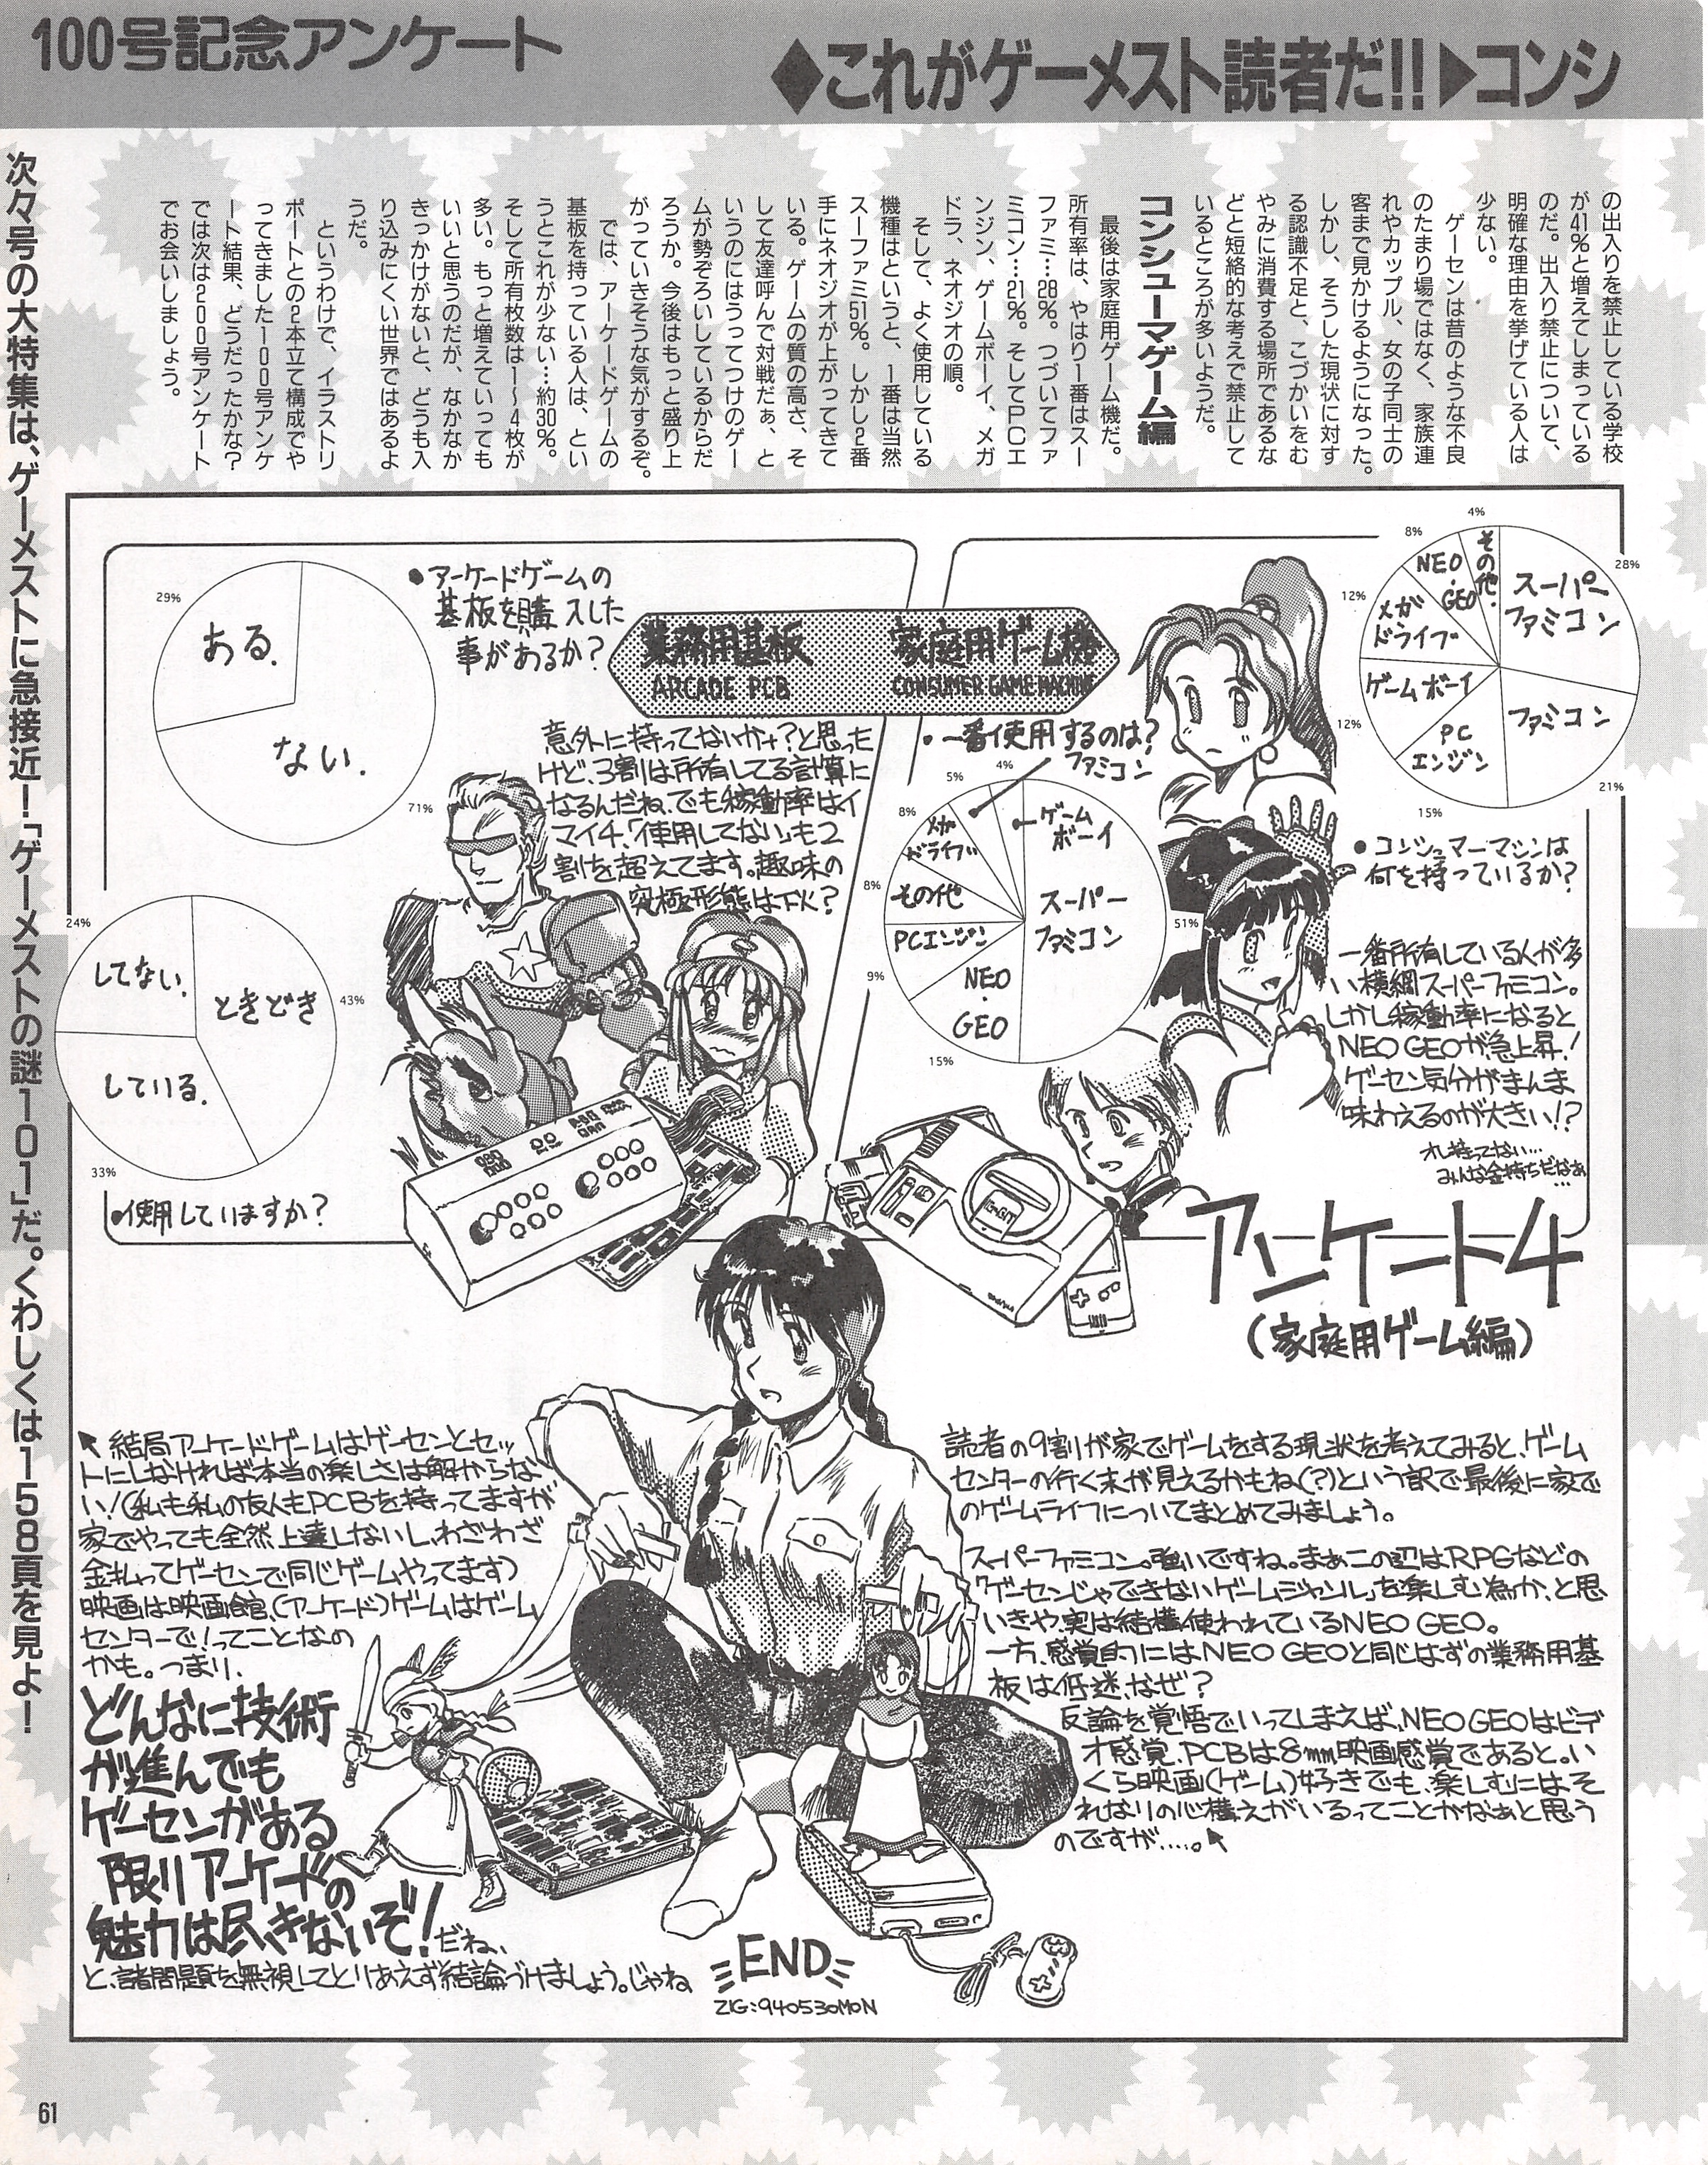 100号記念アンケート
◆これがゲーメスト読者だ!!▶コンシ
の出入りを禁止している学校
が41%と増えてしまっている
のだ。出入り禁止について、
明確な理由を挙げている人は
少ない。
ゲーセンは昔のような不良
のたまり場ではなく、家族連
れやカップル、女の子同士の
客まで見かけるようになった。
しかし、そうした現状に対す
る認識不足と、こづかいをむ
やみに消費する場所であるな
どと短絡的な考えで禁止して
いるところが多いようだ。
コンシューマゲーム編
最後は家庭用ゲーム機だ。
所有率は、やはり1番はスー
ファミ…28%。つづいてファ
ミコン…21%。そしてPCエ
ンジン、ゲームボーイ、メガ
ドラ、ネオジオの順。
そして、よく使用している
機種はというと、1番は当然
スーファミ51%。しかし2番
手にネオジオが上がってきて
いる。ゲームの質の高さ、そ
して友達呼んで対戦だぁ、と
いうのにはうってつけのゲー
ムが勢ぞろいしているからだ
ろうか。今後はもっと盛り上
がっていきそうな気がするぞ。
では、アーケードゲームの
基板を持っている人は、とい
うとこれが少ない…約30%。
そして所有枚数は1〜4枚が
多い。もっと増えていっても
いいと思うのだが、なかなか
きっかけがないと、どうも入
り込みにくい世界ではあるよ
うだ。
というわけで、イラストリ
ポートとの2本立て構成でや
ってきました100号アンケ
ート結果、どうだったかな?
では次は200号アンケート
でお会いしましょう。
次々号の大特集は、ゲーメストに急接近!「ゲーメストの謎101」だ。くわしくは158頁を見よ!
家庭用ゲーム機
CONSUMER GAME MACHINE
業務用基板
ARCADE PCB
●コンシューマーマシンは
何を持っているか?
スーパー
ファミコン
28%
ファミコン
21%
PC
エンジン
15%
ゲームボーイ
12%
メガ
ドライブ
12%
NEO
・
GEO
8%
その他.
4%
一番所有している人が多
い横綱スーパーファミコン。
しかし稼動率になると
NEO GEOが急上昇!
ゲーセン気分がまんま
味わえるのが大きい!?
オレ持ってない…
みんな金持ちだなぁ
…
・一番使用するのは?
ファミコン
ゲーム
ボーイ
スーパー
ファミコン
51%
NEO
・
GEO
15%
PCエンジン
9%
その他
8%
メガ
ドライブ
8%
5%
4%
●アーケードゲームの
基板を購入した
事があるか?
ある.
29%
ない.
71%
意外に持ってないかナ?と思った
けど、3割は所有してる計算に
なるんだね、でも稼動率はイ
マイチ、「使用してない」も2
割を超えてます。趣味の
究極形態はド火?
●使用していますか?
ときどき
43%
している.
33%
してない.
24%
アンケート4
(家庭用ゲーム編)
読者の9割が家でゲームをする現状を考えてみると、ゲーム
センターの行く末が見えるかもね(?)という訳で最後に家で
のゲームライフについてまとめてみましょう。
スーパーファミコン。強いですね。まぁこの辺はRPGなどの
「ゲーセンじゃできないゲームジャンル」を楽しむ為か、と思
いきや、実は結構使われているNEO GEO。
一方、感覚的にはNEO GEOと同じはずの業務用基
板は低迷、なぜ?
反論を覚悟でいってしまえば、NEO GEOはビデ
オ感覚、PCBは8mm映画感覚であると。い
くら映画(ゲーム)好きでも、楽しむにはそ
れなりの心構えがいるってことかなぁと思う
のですが……。
結局アーケードゲームはゲーセンとセッ
トにしなければ本当の楽しさは解からな
い!(私も私の友人もPCBを持ってますが
家でやっても全然上達しないし、わざわざ
金払ってゲーセンで同じゲームやってます)
映画は映画館、(アーケード)ゲームはゲーム
センターで!ってことなの
かも。つまり、
どんなに技術
が進んでも
ゲーセンがある
限りアーケードの
魅力は尽きないぞ!だね、
と、諸問題を無視してとりあえず結論づけましょう。じゃね
END
ZIG:940530MON
61